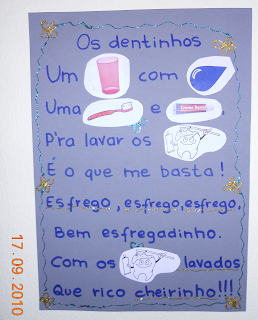 Os dentinhos
Um com
Uma e
P'ra lavar os
É o que me basta!
Esfrego, esfrego, esfrego,
Bem esfregadinho.
Com os lavados
Que rico cheirinho!!!
17.09.2010